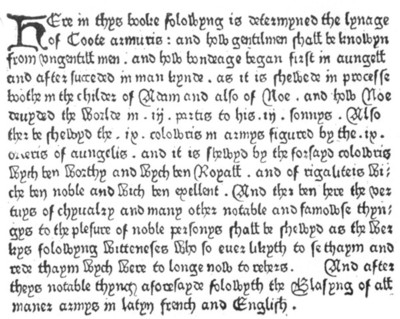 HEre in thys booke folowyng is determyned the lynage
of Coote armuris: and how gentilmen shall be knowyn
from vngentill men . and how bondage began first in aungell
and after succeded in man kynde . as it is shewede in processe
boothe in the childer of Adam and also of Noe . and how Noe
deuyded the Worlde in . iij . partis to his . iij . sonnys . Also
ther be shewyd the . ix . colowris in armys figured by the . ix .
orderis of aungelis . and it is shewyd by the forsayd colowris
Wych ben Worthy and Wych ben Royall . and of rigaliteis Wi-
che ben noble and Wich ben excellent . And ther ben here the ver
tuys of chyualry and many other notable and famowse thyn-
gys to the plesure of noble personys shall be shewyd as the Wer
kys folowyng Witteneses Who so euer likyth to se thaym and
rede thaym Wych Were to longe now to rehers . And after
theys notable thyngys aforesayde folowyth the Blasyng of all
maner armys in latyn french and English .